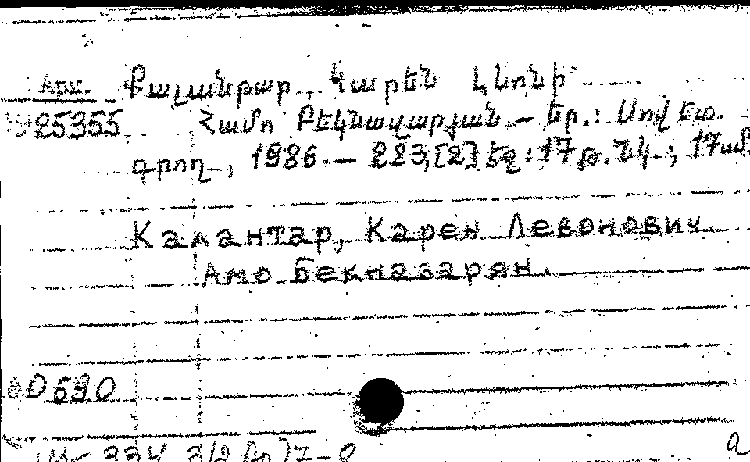 Քալանթար, Կարեն Լևոնի
25355 Համո Բեկնազարյան. – Եր.: Սովետ.
գրող, 1986. – 223,[2] էջ: 17 թ. նկ.; 17 սմ.
Калантар, Карен Левонович.
Амо Бекназарян.
0690